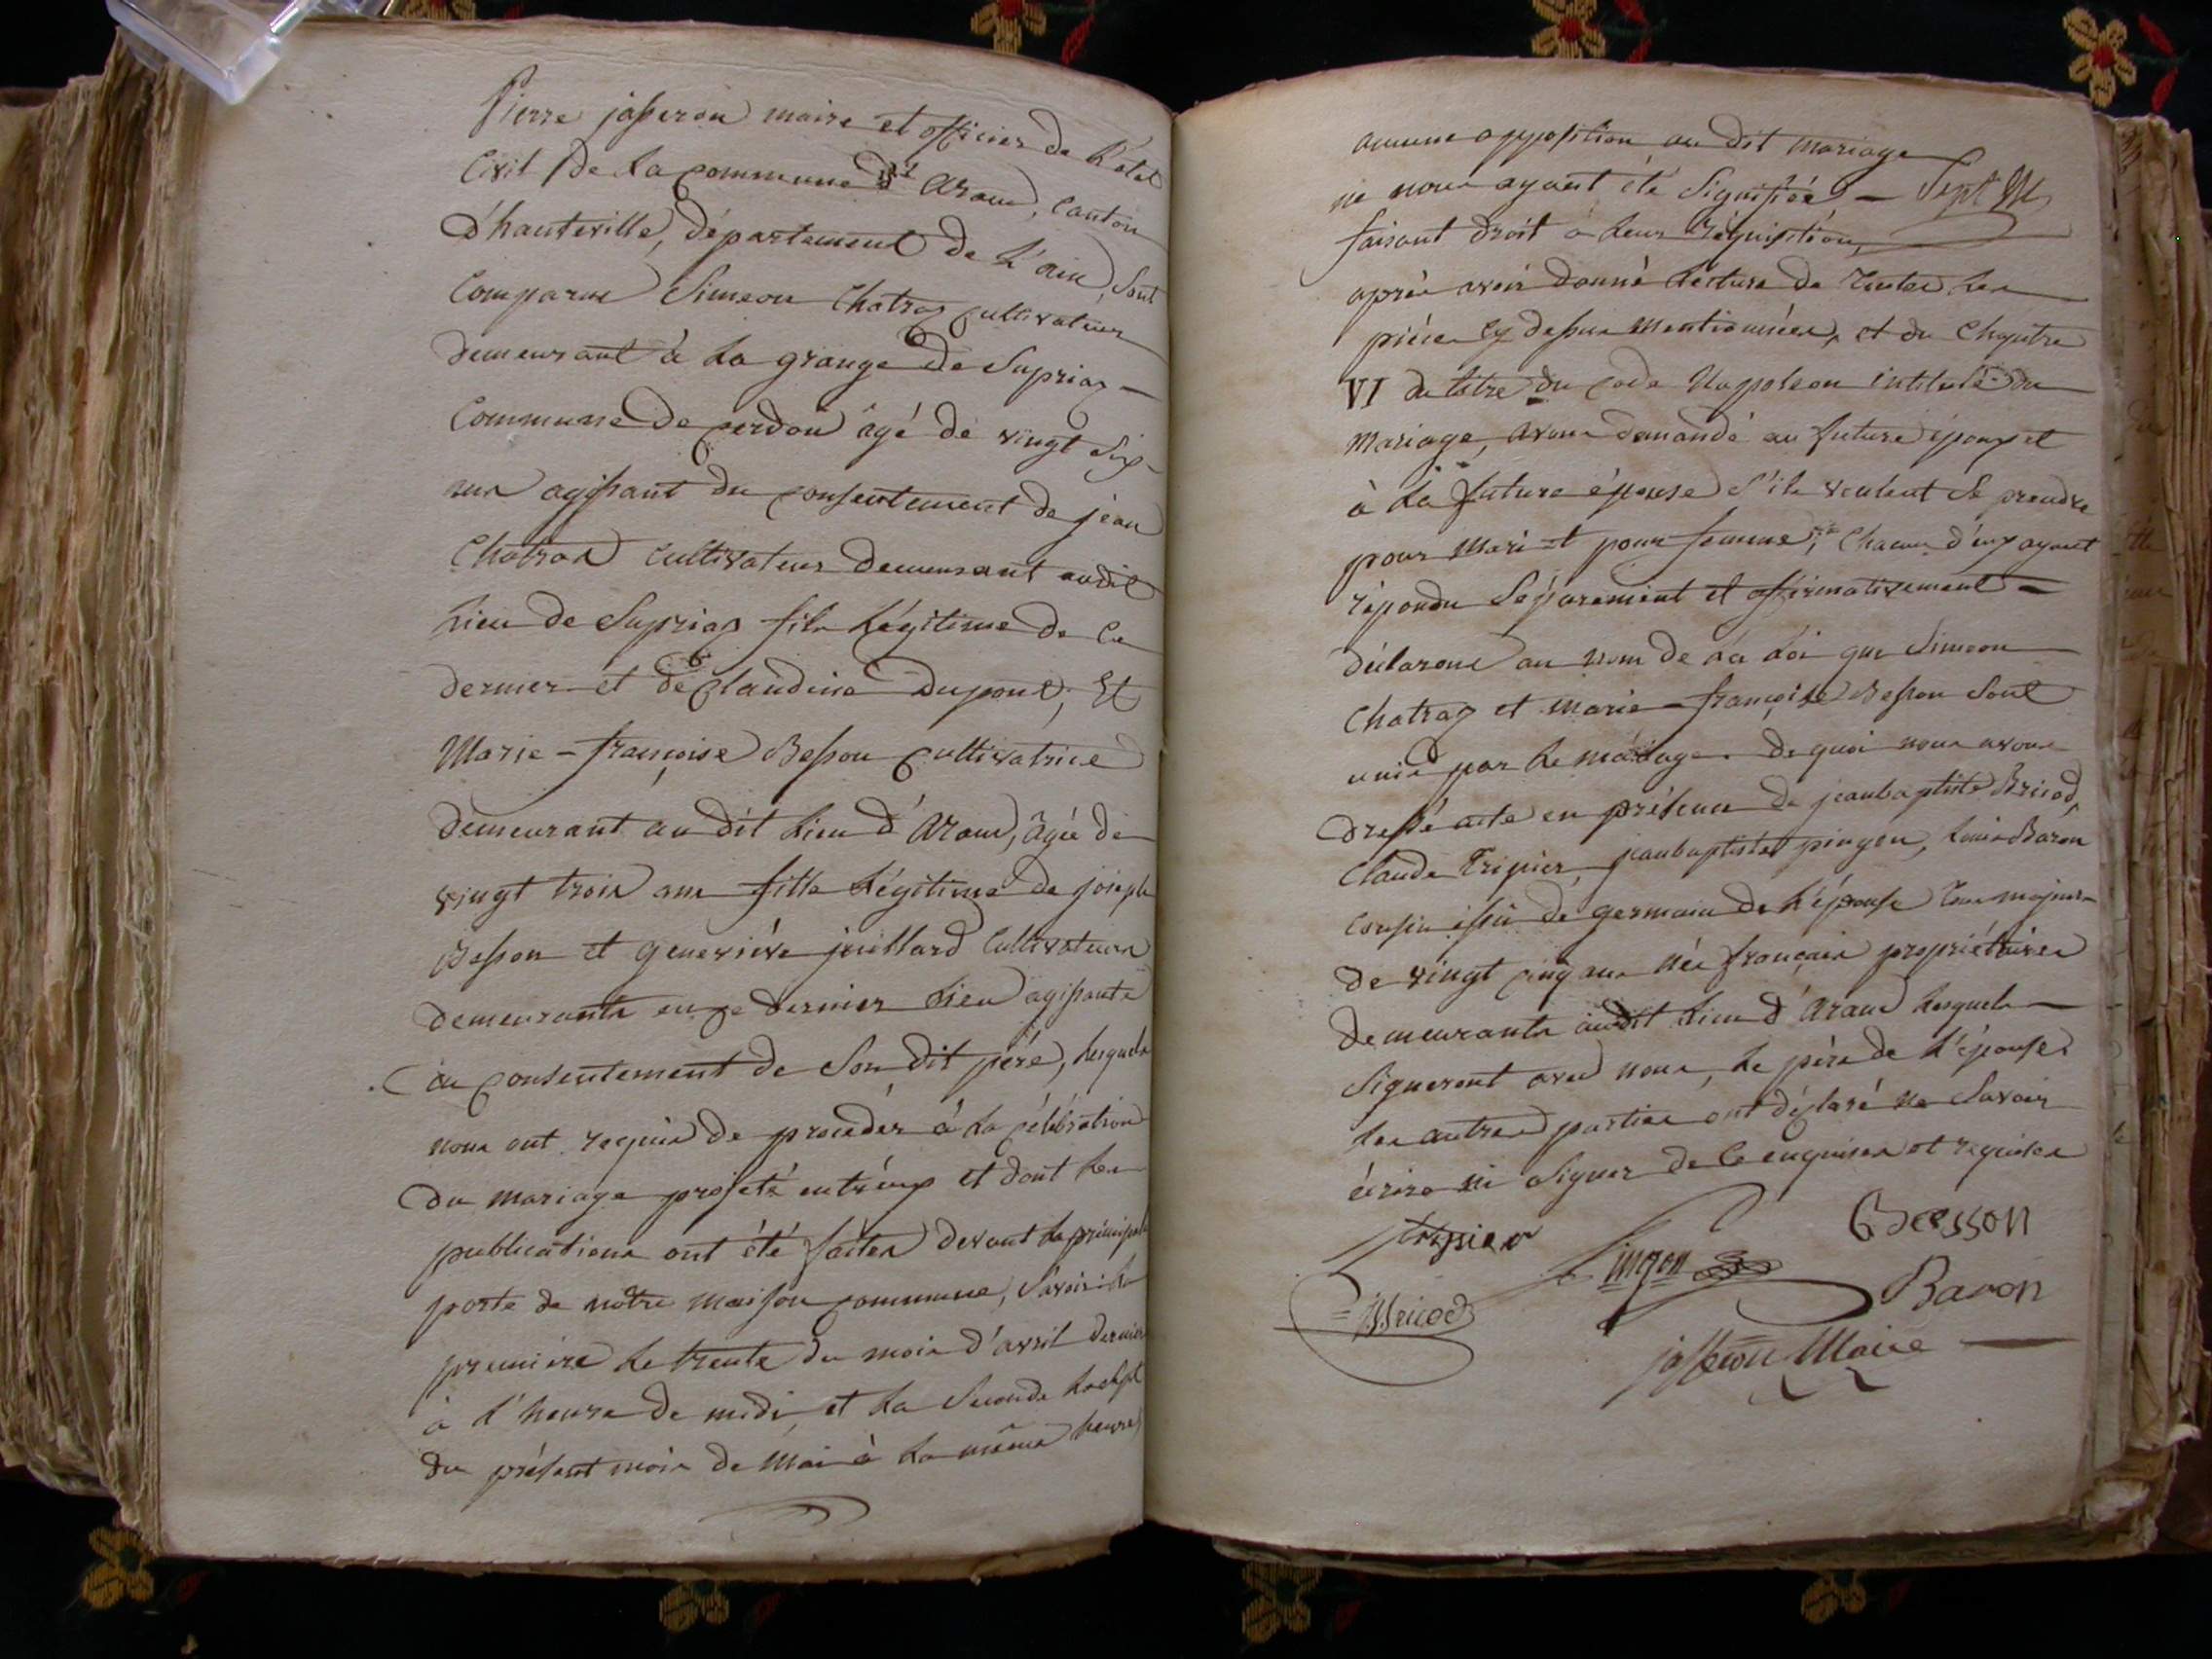 Pierre jasseron maire et officier de l'état
civil de la commune d'Aranc, canton
d'hauteville, département de l'ain, sont
comparus Simeon Chatras cultivateur
demeurant à la grange de Supriaz
commune de cerdon âgé de vingt six
ans agissant du consentement de jean
Chatras cultivateur demeurant audit
lieu de Supriaz fils légitime de ce
dernier et de claudine Dupont, Et
Marie-françoise Besson cultivatrice
demeurant au dit lieu d'Aranc, âgée de
vingt trois ans fille légitime de joseph
Besson et geneviève juillard cultivateurs
demeurants en ce dernier lieu agissante
du consentement de Son dit père, lesquels
nous ont requis de procéder à la célébration
du mariage projeté entr'eux et dont les
publications ont été faites devant la principale
porte de notre maison commune, Savoir: la
première le trente du mois d'avril dernier
à l'heure de midi, et la Seconde le sept
du présent mois de Mai à la même heure
aucune opposition au dit mariage
ne nous ayant été Signifiée —
faisant droit à leur réquisition,
après avoir donné lecture de toutes les
pièces cy dessus mentionnées, et du Chapitre
VI du titre du code Napoléon intitulé du
mariage, avons demandé au future époux et
à la future épouse S'ils veulent Se prendre
pour Mari et pour femme; Chacun d'eux ayant
répondu Séparement et affirmativement —
déclarons au nom de la loi que Simeon
Chatras et marie-françoise Besson Sont
unis par le mariage. de quoi nous avons
dressé acte en présence de jeanbaptiste Bricod,
Claude Tripier, jeanbaptiste pingon, louis Baron
Cousin issu de germain de l'épouse tous majeurs
de vingt cinq ans nés français propriétaires
demeurants audit lieu d'Aranc lesquels —
Signeront avec nous, le père de l'épouse
les autres parties ont déclaré ne Savoir
écrire ni Signer de ce enquises et requises
Tripier Pingon Besson
Bricod Baron
jasseron Maire